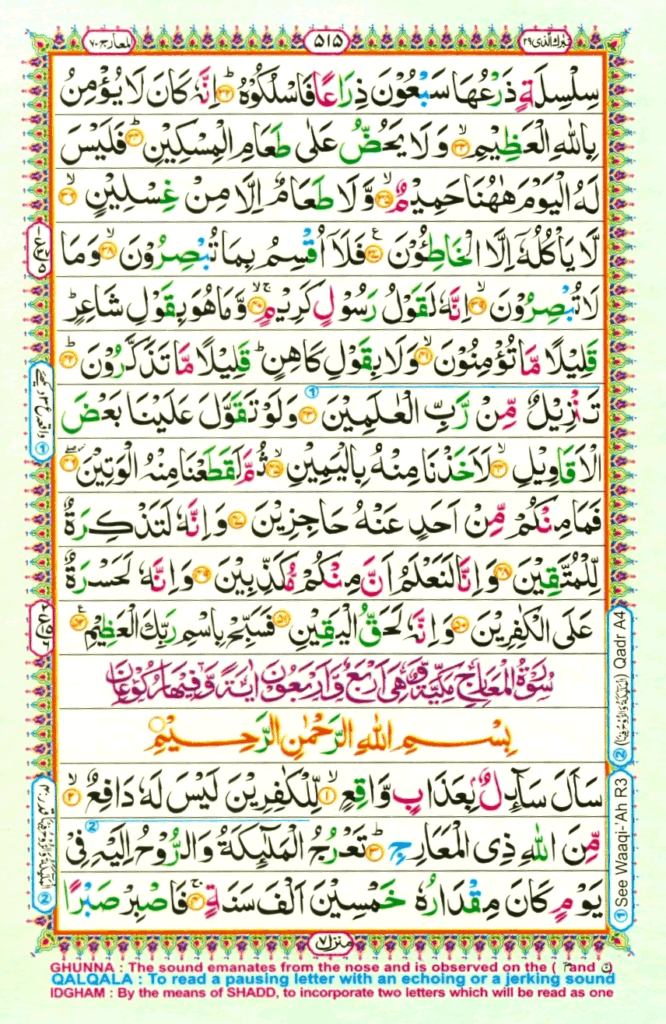 تبٰرك الذى ٢٩ ٥١٥ المعارج ٧٠
سِلْسِلَةٍ ذَرْعُهَا سَبْعُوْنَ ذِرَاعًا فَاسْلُكُوْهُ ؕ﴿۳۲﴾ اِنَّهٗ كَانَ لَا يُؤْمِنُ
بِاللّٰهِ الْعَظِيْمِ ۙ﴿۳۳﴾ وَ لَا يَحُضُّ عَلٰى طَعَامِ الْمِسْكِيْنِ ؕ﴿۳۴﴾ فَلَيْسَ
لَهُ الْيَوْمَ هٰهُنَا حَمِيْمٌ ۙ﴿۳۵﴾ وَّلَا طَعَامٌ اِلَّا مِنْ غِسْلِيْنٍ ۙ﴿۳۶﴾
لَّا يَاْكُلُهٗۤ اِلَّا الْخَاطِـُٔوْنَ ﴿۳۷﴾ فَلَاۤ اُقْسِمُ بِمَا تُبْصِرُوْنَ ۙ﴿۳۸﴾ وَمَا
لَا تُبْصِرُوْنَ ۙ﴿۳۹﴾ اِنَّهٗ لَقَوْلُ رَسُوْلٍ كَرِيْمٍ ۚۙ﴿۴۰﴾ وَّمَا هُوَ بِقَوْلِ شَاعِرٍ ؕ
قَلِيْلًا مَّا تُؤْمِنُوْنَ ۙ﴿۴۱﴾ وَلَا بِقَوْلِ كَاهِنٍ ؕ قَلِيْلًا مَّا تَذَكَّرُوْنَ ؕ﴿۴۲﴾
تَنْزِيْلٌ مِّنْ رَّبِّ الْعٰلَمِيْنَ ﴿۴۳﴾ وَلَوْ تَقَوَّلَ عَلَيْنَا بَعْضَ
الْاَقَاوِيْلِ ۙ﴿۴۴﴾ لَاَخَذْنَا مِنْهُ بِالْيَمِيْنِ ۙ﴿۴۵﴾ ثُمَّ لَقَطَعْنَا مِنْهُ الْوَتِيْنَ ﴿۴۶﴾
فَمَا مِنْكُمْ مِّنْ اَحَدٍ عَنْهُ حَاجِزِيْنَ ﴿۴۷﴾ وَاِنَّهٗ لَتَذْكِرَةٌ
لِّلْمُتَّقِيْنَ ﴿۴۸﴾ وَاِنَّا لَنَعْلَمُ اَنَّ مِنْكُمْ مُّكَذِّبِيْنَ ﴿۴۹﴾ وَاِنَّهٗ لَحَسْرَةٌ
عَلَى الْكٰفِرِيْنَ ﴿۵۰﴾ وَاِنَّهٗ لَحَقُّ الْيَقِيْنِ ﴿۵۱﴾ فَسَبِّحْ بِاسْمِ رَبِّكَ الْعَظِيْمِ ﴿۵۲﴾
سُوْرَةُ الْمَعَارِجِ مَكِّيَّةٌ وَّهِىَ اَرْبَعٌ وَّاَرْبَعُوْنَ اٰيَةً وَّفِيْهَا رُكُوْعَانِ
بِسْمِ اللّٰهِ الرَّحْمٰنِ الرَّحِيْمِ
سَاَلَ سَآىِٕلٌۢ بِعَذَابٍ وَّاقِعٍ ۙ﴿۱﴾ لِّلْكٰفِرِيْنَ لَيْسَ لَهٗ دَافِعٌ ۙ﴿۲﴾
مِّنَ اللّٰهِ ذِى الْمَعَارِجِ ؕ﴿۳﴾ تَعْرُجُ الْمَلٰٓىِٕكَةُ وَالرُّوْحُ اِلَيْهِ فِىْ
يَوْمٍ كَانَ مِقْدَارُهٗ خَمْسِيْنَ اَلْفَ سَنَةٍ ۚ﴿۴﴾ فَاصْبِرْ صَبْرًا
منزل ٧
② Qadr A4
① See Waaqi-'Ah R3
GHUNNA : The sound emanates from the nose and is observed on the ( م and ن
QALQALA : To read a pausing letter with an echoing or a jerking sound
IDGHAM : By the means of SHADD, to incorporate two letters which will be read as one